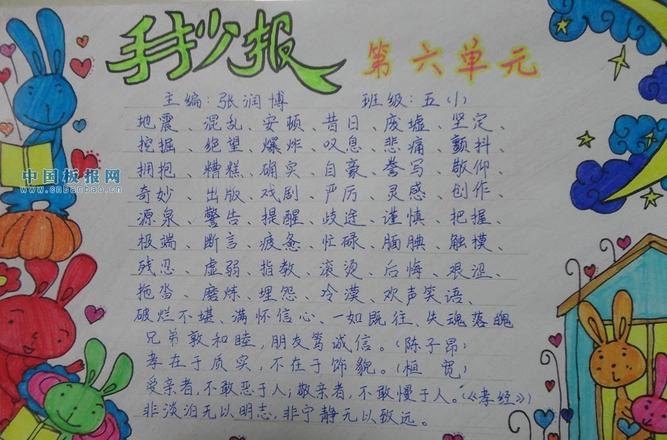 手抄报 第六单元
主编：张润博 班级：五（小）
地震、混乱、安顿、昔日、废墟、坚定、
挖掘、绝望、爆炸、叹息、悲痛、颤抖、
拥抱、糟糕、确实、自豪、誊写、敬仰
中国板报网
www.cnbanbao.cn
奇妙、出版、戏剧、严厉、灵感、创作、
源泉、警告、提醒、歧途、谨慎、把握、
极端、断言、疲惫、忙碌、腼腆、触摸、
残忍、虚弱、指教、滚烫、后悔、艰涩、
拖沓、磨炼、埋怨、冷漠、欢声笑语、
破烂不堪、满怀信心、一如既往、失魂落魄
兄弟敦和睦，朋友笃诚信。（陈子昂）
孝在于质实，不在于饰貌。（桓宽）
爱亲者，不敢恶于人；敬亲者，不敢慢于人。（《孝经》）
非淡泊无以明志，非宁静无以致远。